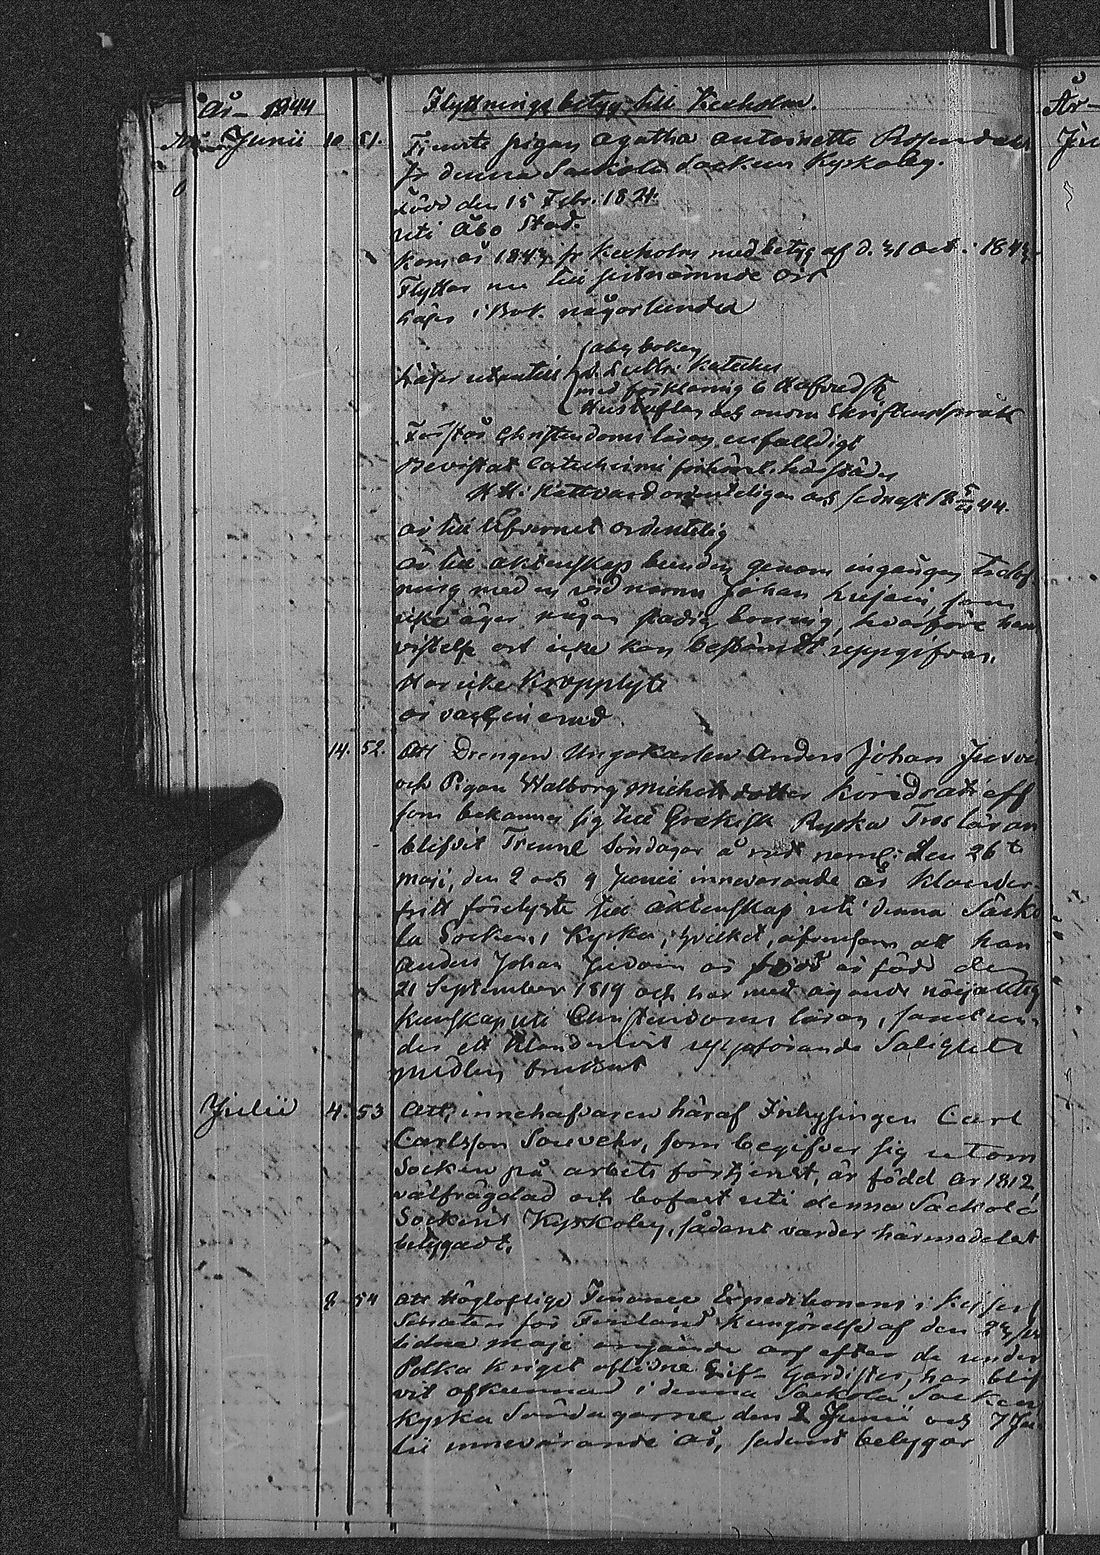 År 1844 Flyttningsbetyg till Kexholm. År
Junii 10 51. Tjenste pigan Agatha Antoinette Rosendahl
fr denna Sackola Sockens Kyrkoby.
Född den 15 Febr. 1824.
uti Åbo Stad.
Kom år 1843 fr Kexholm med betyg af d. 31 Oct. 1843.
Flyttar nu till sistnämnde ort
Läser i Bok någorlunda
abc boken
Läser utantill d. Luth: Kateches
med förklaring
Hustaflan och annor Skriftens språk
Förstår Christendoms läran enfalldigt
Bevistat Catechismi förhören härstädes
H. H: Nattvard ordenteligen och sednast 44.
är till lefvernet ordentelig
är till äktenskap bunden genom ingången trolof-
ning med en vid namn Johan som
icke äger någon stadig boning, hvarföre hans
vistelse ort icke kan bestämdt uppgifvas.
Har icke Kropplyte
är vaccinerad
14. 52. Att Drengen Ungekarlen Anders Johan
och Pigan Walborg Michelsdotter
som bekänner sig till Grekisk Ryska Tros läran
blifvit Trenne Söndagar å rad neml: den 26
Maji, den 2 och 9 Junii innevarande år Klander-
fritt förelyste till äktenskap uti denna Säcko
la Sockens Kyrka, hvilket, äfvensom att han
Anders Johan är född den
21 September 1819 och har med ägande nöjaktig
kunskap uti Christendoms läran, samt un-
der ett Klanderfritt uppförande Salighets
medlen brukat
Julii 4. 53 Att, innehafvaren häraf Inhysingen Carl
Carlsson Souvehr, som begifver sig utom
Socken på arbets förtjenst, är född år 1812
välfrägdad och bofast uti denna Sackola
Sockens Kyrkoby, sådant varder härmedelst
betygadt.
8 54 Att Höglofliga Finance Expeditionens i Kejserl
Senaten för Finland Kungörelse af den
lidne Maji angående arf efter de under
Polska kriget aflidne Lif-Gardister, har blif
vit afkunnad i denna Sackola Socken
Kyrka Söndagarne den 2 Junii och 7 Ju-
lii innevarande år, sådant betygar